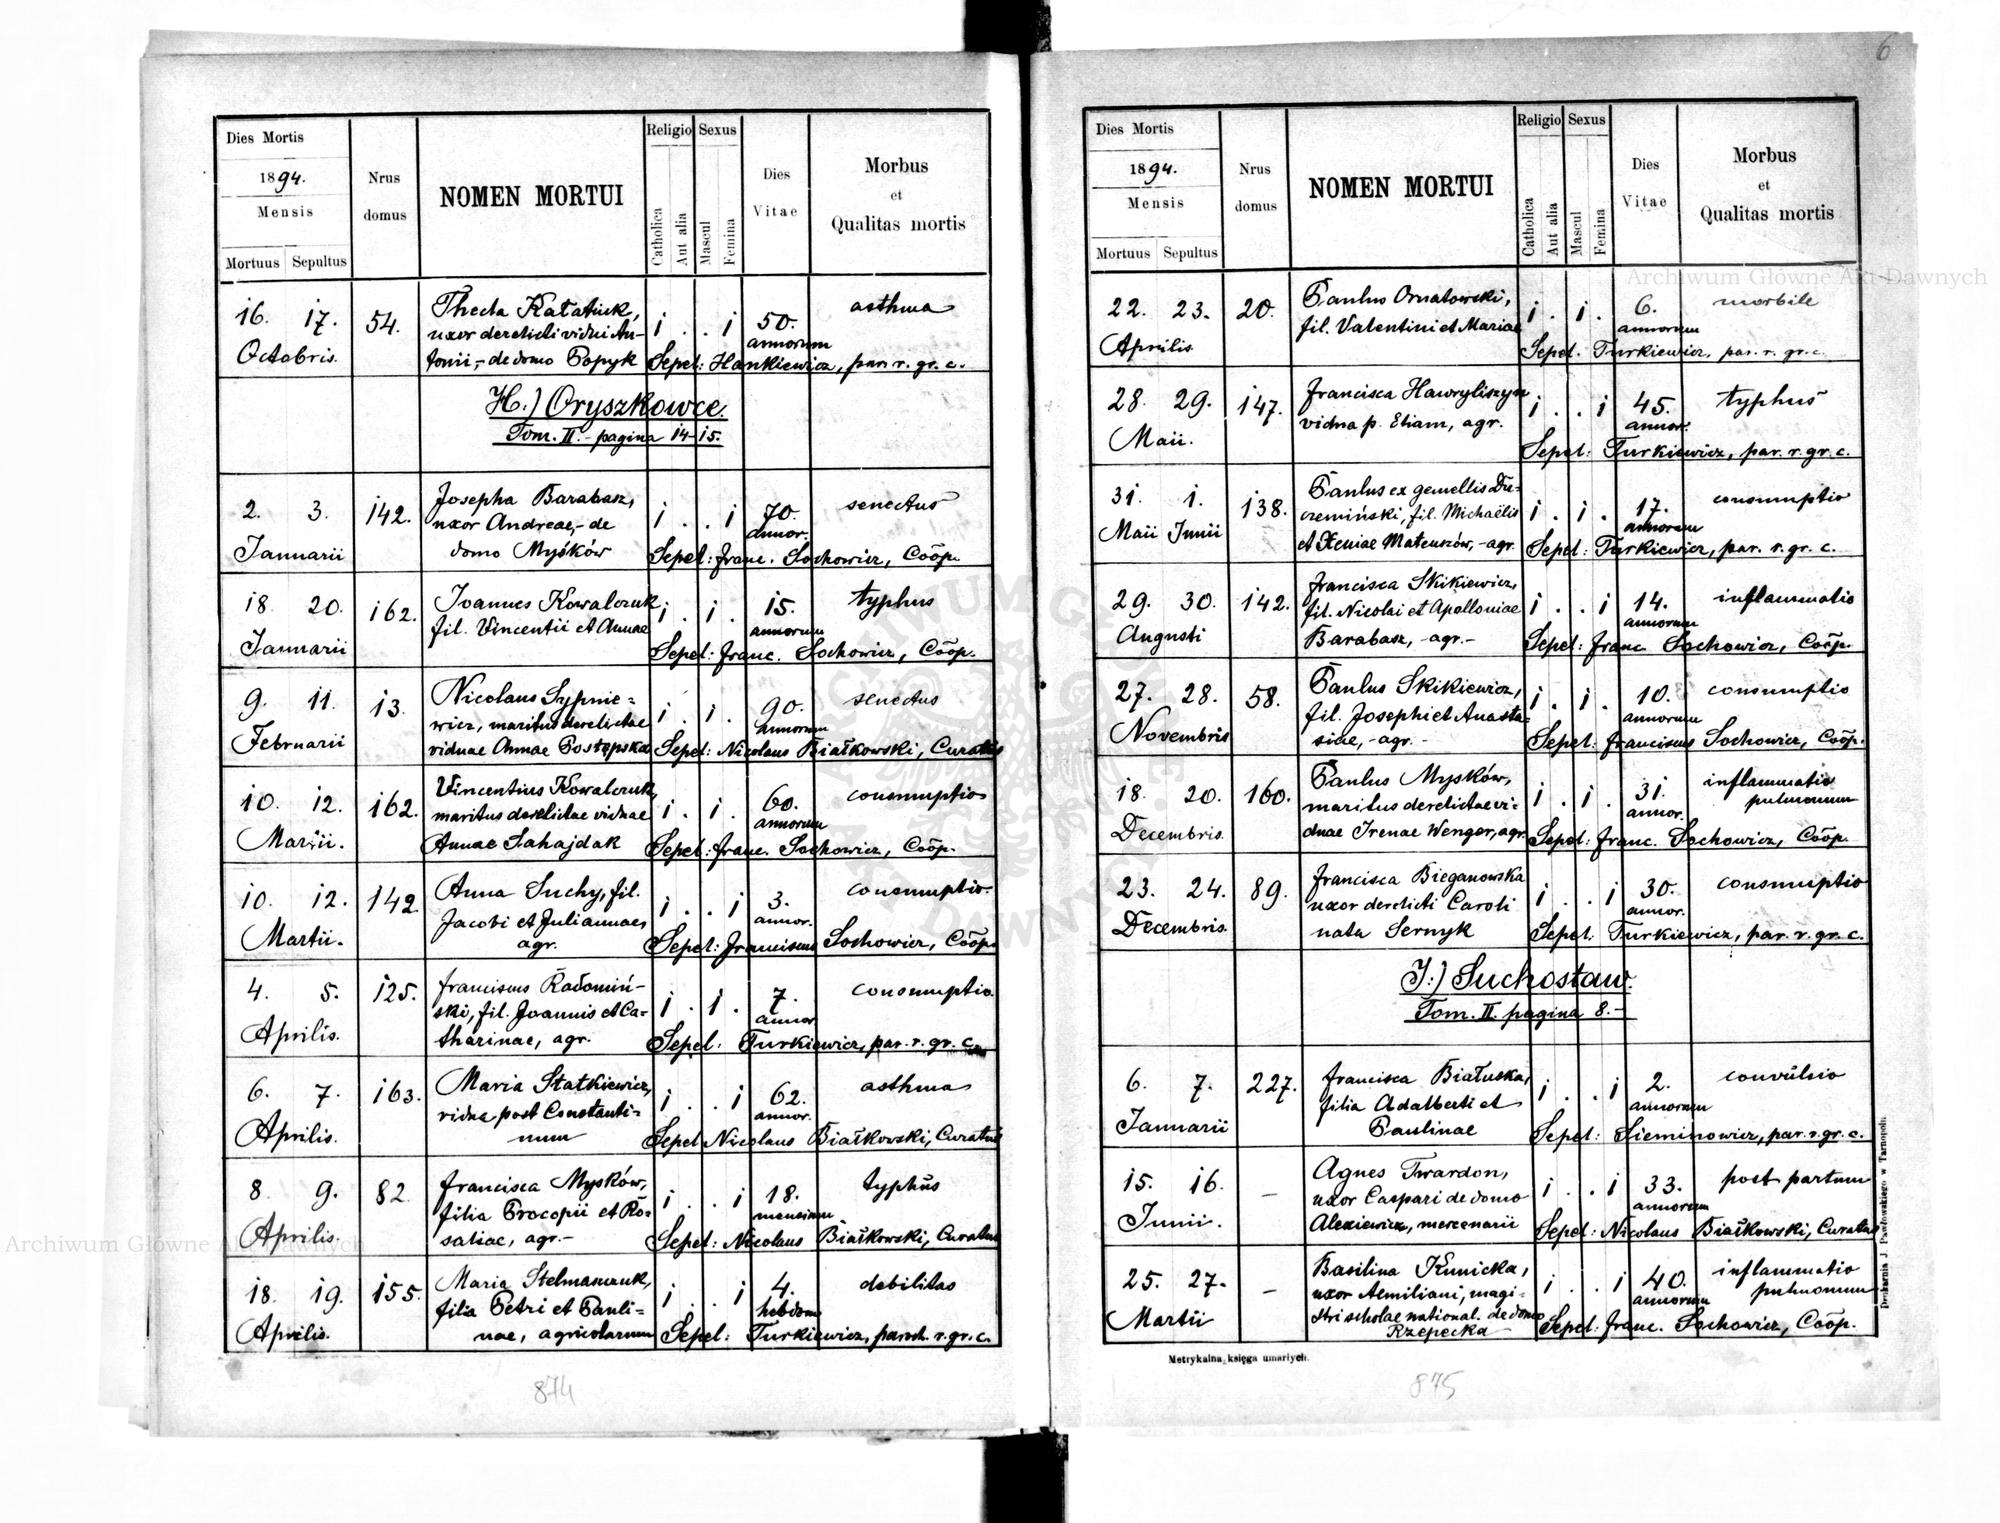 6
Dies Mortis
1894.
Mensis
Mortuus Sepultus
Nrus
domus
NOMEN MORTUI
Religio
Catholica
Aut alia
Sexus
Mascul
Femina
Dies
Vitae
Morbus
et
Qualitas mortis
16. 17. 54. Thecla Kałatiuk, i . . i 50. asthma
uxor derelicti vidui An-
annorum
Octobris. tonii,- de domo Popyk Sepel: Hankiewicz, par. r. gr. c.
H.) Oryszkowce.
Tom. II.- pagina 14-15.
2. 3. 142. Josepha Barabasz, i . . i 70. senectus
uxor Andreae,- de
annor.
Januarii domo Myśków Sepel: Franc. Sochowicz, Coöp.
18. 20. 162. Joannes Kowalczuk i . i . 15. typhus
fil. Vincentii et Annae
annorum
Januarii Sepel: Franc. Sochowicz, Coöp.
9. 11. 13. Nicolaus Sypnie= i . i . 90. senectus
wicz, maritus derelictae
annorum
Februarii viduae Annae Postępska Sepel: Nicolaus Białkowski, Curatus
10. 12. 162. Vincentius Kowalczuk, i . i . 60. consumptio
maritus derelictae viduae
annorum
Martii. Annae Sahajdak Sepel: Franc. Sochowicz, Coöp.
10. 12. 142 Anna Suchy, fil. i . . i 3. consumptio.
Jacobi et Juliannae,
annor.
Martii. agr. Sepel: Franciscus Sochowicz, Coöp.
4. 5. 125. Franciscus Radomiń- i . i . 7. consumptio.
ski, fil. Joannis et Ca=
annor.
Aprilis. tharinae, agr. Sepel: Turkiewicz, par. r. gr. c.
6. 7. 163. Maria Statkiewicz, i . . i 62. asthma
vidua post Constanti=
annor.
Aprilis. num Sepel Nicolaus Białkowski, Curatus
8. 9. 82. Francisca Myśków, i . . i 18. typhus
filia Procopii et Ro=
mensium
Aprilis. saliae, agr.- Sepel: Nicolaus Białkowski, Curatus
18. 19. 155. Maria Stelmaszczuk, i . . i 4. debilitas
filia Petri et Pauli=
hebdom
Aprilis. nae, agricolarum Sepel: Turkiewicz, paroch. r. gr. c.
874
Dies Mortis
1894.
Mensis
Mortuus Sepultus
Nrus
domus
NOMEN MORTUI
Religio
Catholica
Aut alia
Sexus
Mascul
Femina
Dies
Vitae
Morbus
et
Qualitas mortis
22. 23. 20. Paulus Ornatowski, i . i . 6. morbile
fil. Valentini et Mariae
annorum
Aprilis Sepel. Turkiewicz, par. r. gr. c.
28. 29. 147. Francisca Hawryliszyn i . . i 45. typhus
vidua p. Eliam, agr.
annor.
Maii. Sepel: Turkiewicz, par. r. gr. c.
31. 1. 138. Paulus ex gemellis Du= i . i . 17. consumptio
czemiński, fil. Michaëlis
annorum
Maii Junii et Xeniae Mateuszów,- agr. Sepel: Turkiewicz, par. r. gr. c.
29. 30. 142. Francisca Skikiewicz, i . . i 14. inflammatio
fil. Nicolai et Apolloniae
annorum
Augusti Barabasz, - agr.- Sepel: Franc. Sochowicz, Coöp.
27. 28. 58. Paulus Skikiewicz, i . i . 10. consumptio
fil. Josephi et Anasta=
annorum
Novembris siae, - agr. - Sepel: Franciscus Sochowicz, Coöp.
18. 20. 160. Paulus Myśków, i . i . 31. inflammatio
maritus derelictae vi- pulmonum
annor.
Decembris. duae Irenae Wenger, agr. Sepel: Franc. Sochowicz, Coöp.
23. 24. 89. Francisca Bieganowska i . . i 30. consumptio
uxor derelicti Caroli
annor.
Decembris. nata Sernyk Sepel: Turkiewicz, par. r. gr. c.
J.) Suchostaw.
Tom. II. pagina 8.-
6. 7. 227. Francisca Białuska, i . . i 2. convulsio
filia Adalberti et
annorum
Januarii Paulinae Sepel: Sieminowicz, par. r. gr. c.
15. 16. - Agnes Twardon, i . . i 33. post partum
uxor Caspari de domo
annorum
Junii. Alexiewicz, mercenarii Sepel: Nicolaus Białkowski, Curatus
25. 27. - Basilina Kunicka, i . . i 40. inflammatio
uxor Aemiliani, magi- pulmonum
annorum
Martii stri scholae national. de domo Sepel: Franc. Sochowicz, Coöp.
Rzepecka
Metrykalna księga umarłych.
Drukarnia J. Pawłowskiego w Tarnopolu.
875
Archiwum Główne Akt Dawnych
Archiwum Główne Akt Dawnych
ARCHIWUM GŁÓWNE AKT DAWNYCH